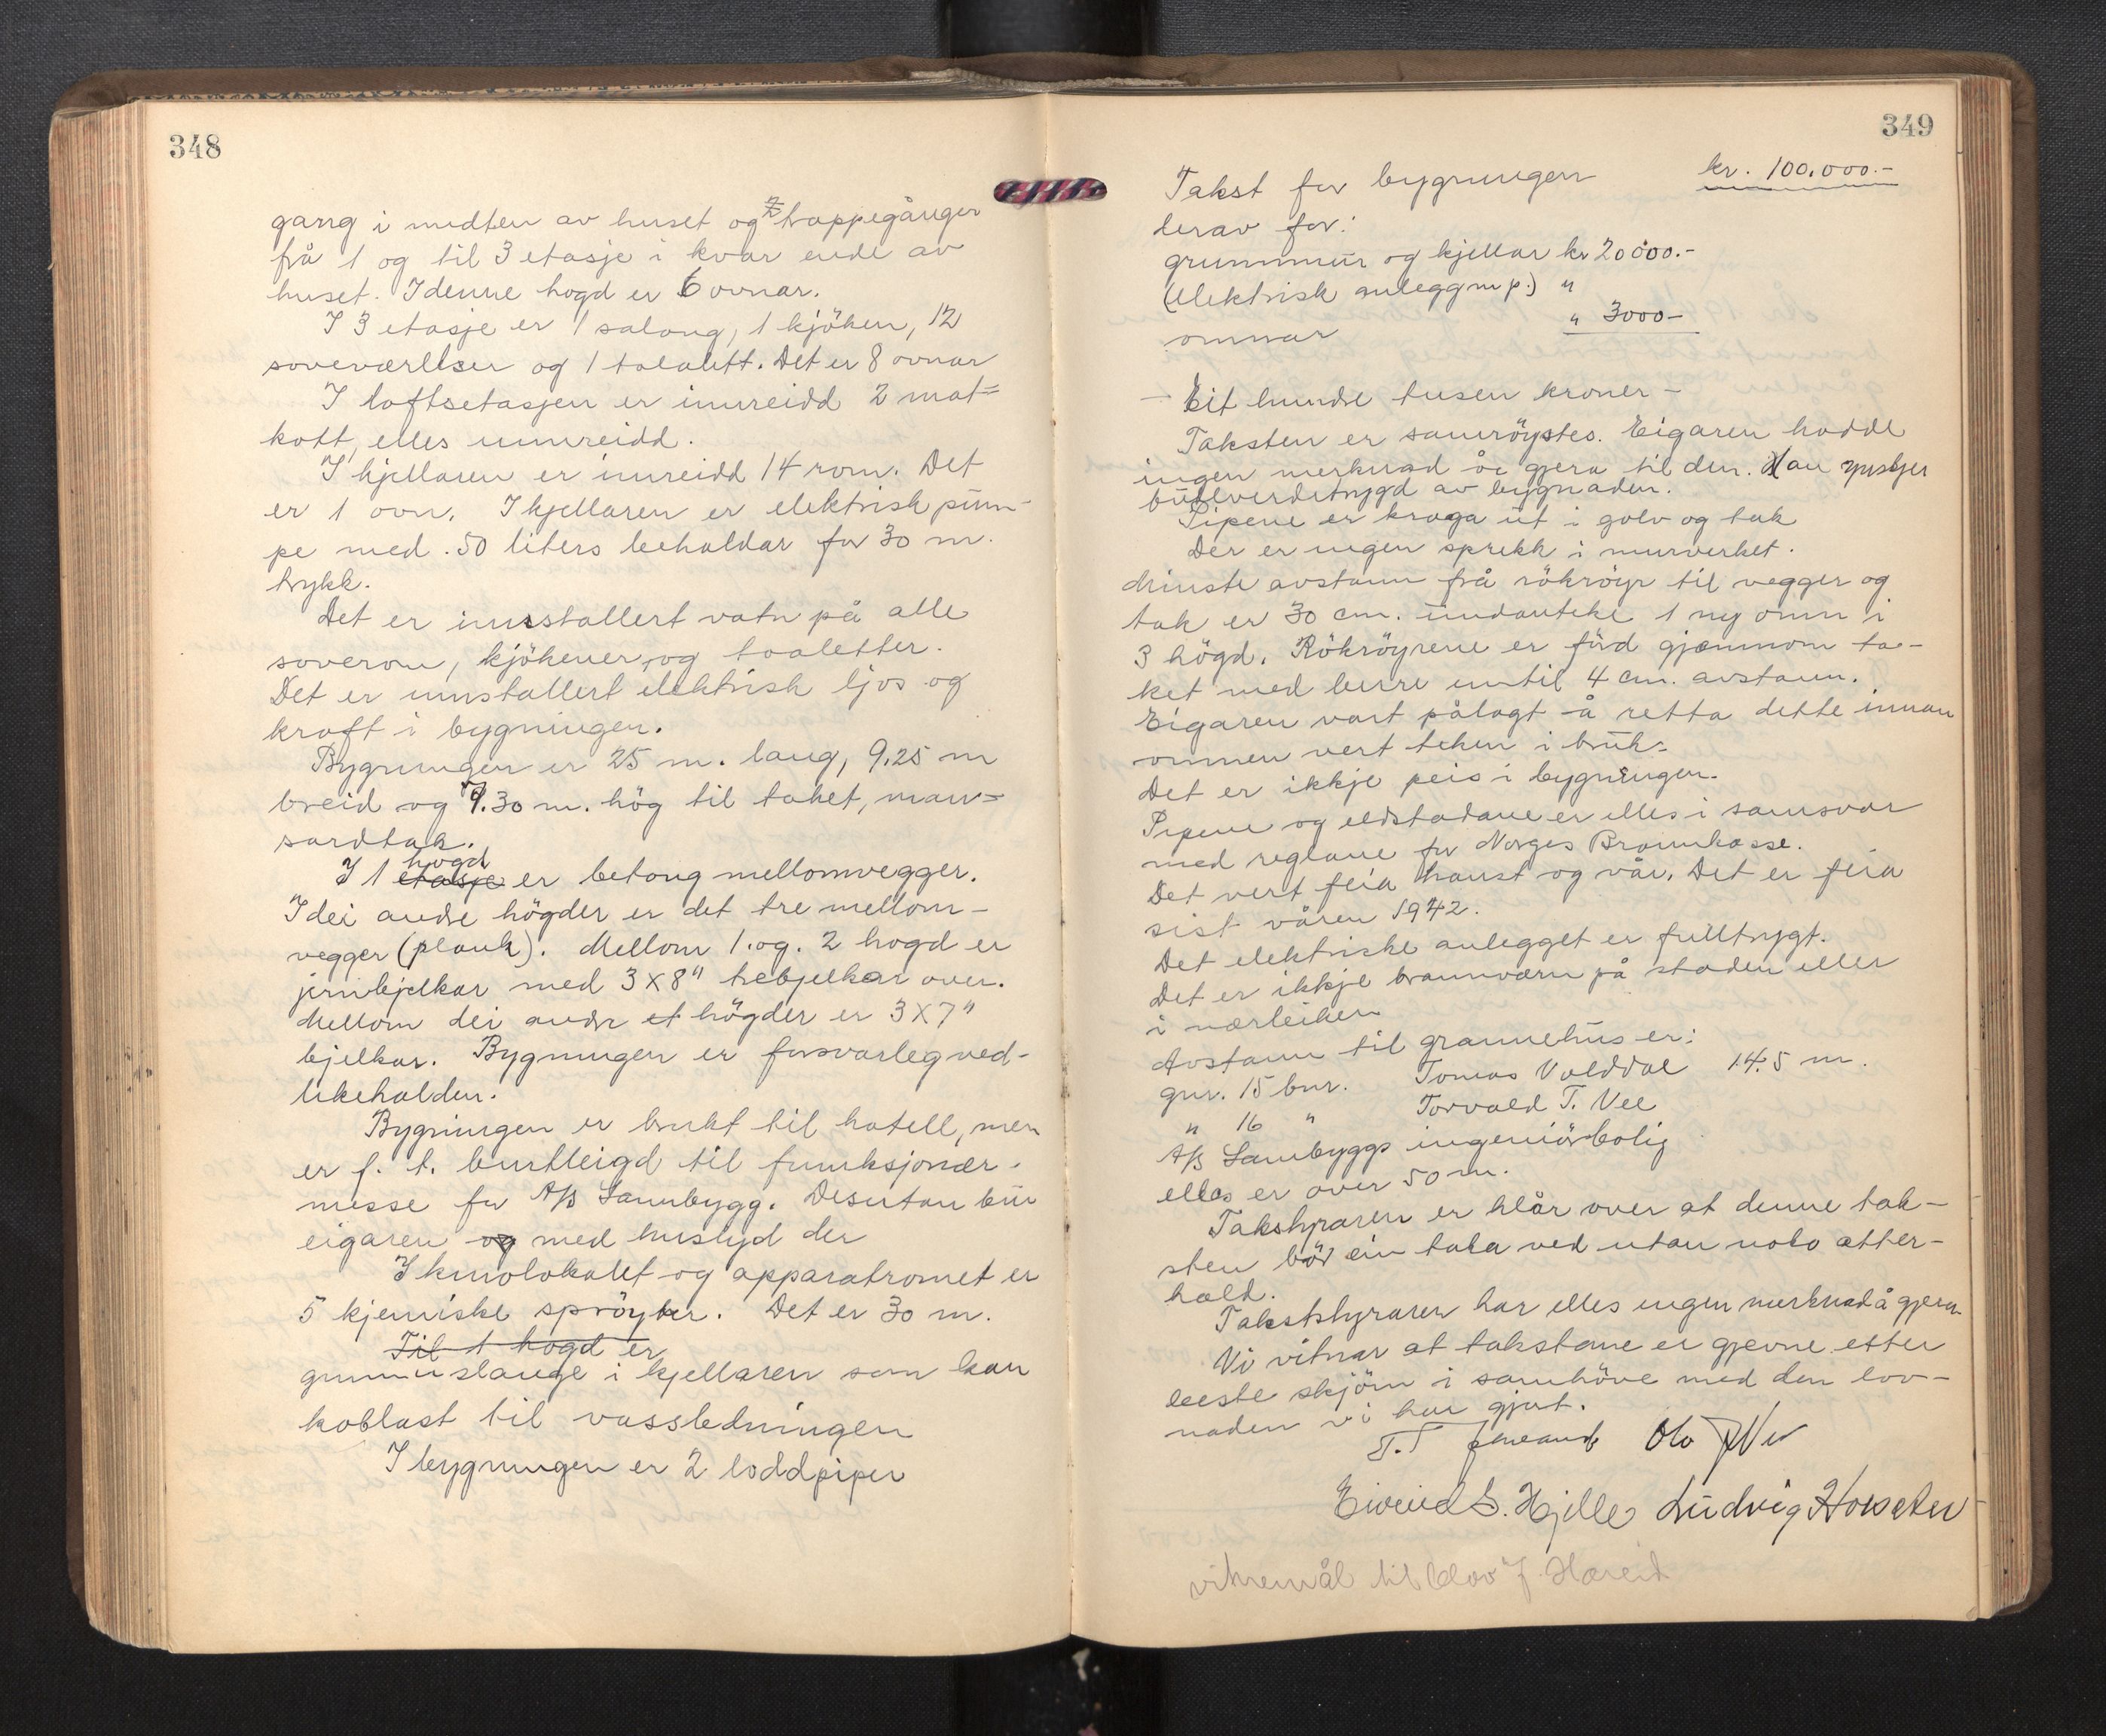 348
gang i midten av huset og 2 trappegånger
frå 1 og til 3 etasje i kvar ende av
huset. I denne hogd er 6 ovnar.
I 3 etasje er 1 salong, 1 kjöken, 12
soveværelser og 1 tolalett. Det er 8 ovnar
I loftsetasjen er innreidd 2 mat=
kott, elles uinnreidd.
I kjellaren er innreidd 14 rom. Det
er 1 ovn. I kjellaren er elektrisk pum-
pe med 50 liters behaldar for 30 m.
trykk.
Det er innstallert vatn på alle
soverom, kjökener, og toaletter.
Det er innstallert elektrisk ljos og
kraft i bygningen.
Bygningen er 25 m. lang, 9,25 m
breid og 9.30 m. hög til taket, man=
sardtak.
hogd
I 1 etasje er betong mellomvegger.
I dei andre högder er det tre mellom-
vegger (plank). Mellom 1. og. 2 hogd er
jernbjelkar med 3 x 8" trebjelkar over.
Mellom dei andre et högder er 3 X 7"
bjelkar. Bygningen er forsvarleg ved-
likehalden.
Bygningen er brukt til hotell, men
er f. t. burtleigd til funksjonær-
messe for A/S Lannbygg. Desutan bur
eigaren og med huslyd der
I kinolokalet og apparatromet er
5 kjemiske spröyter. Det er 30 m.
Til 1 hogd er
gummislange i kjellaren som kan
koblast til vassledningen
I bygningen er 2 loddpiper
349
Takst for bygningen kr. 100.000.-
derav for:
grunnmur og kjellar kr 20000.-
(elektrisk anlegg m p.) "
omnar " 3000-
- Eit hundre tusen kroner -
Taksten er samröystes. Eigaren hadde
ingen merknad å gjera til den. Han ynskjer
fullverditrygd av bygnaden.
Pipene er kraga ut i golv og tak
Der er ingen sprekk i murverket.
Minste avstann frå rökröyr til vegger og
tak er 30 cm. undanteke 1 ny omn i
3 högd. Rökröyrene er förd gjennom ta-
ket med berre inntil 4 cm. avstann.
Eigaren vart pålagt å retta dette innan
omnen vert teken i bruk.
Det er ikkje peis i bygningen.
Pipene og eldstadane er elles i samsvar
med reglane for Norges Brannkasse.
Det vert feia haust og vår. Det er feia
sist våren 1942.
Det elektriske anlegget er fulltrygt.
Det er ikkje brannværn på staden eller
i nærleiken
Avstann til grannehus er:
gnr. 15 bnr. Tomas Valddal 14.5 m.
" 16 " Torvald T. Vee
A/S Lannbyggs ingeniörbolig
elles er over 50 m.
Takstyraren er klår over at denne tak-
sten bör ein taka ved utan noko atter-
hald.
Takststyraren har elles ingen merknad å gjera
Vi vitnar at takstane er gjevne etter
beste skjön i samhöve med den lov-
naden vi har gjort.
Eivind S. Hjelle Ludvig
vitnemål til Olav J. Hareid